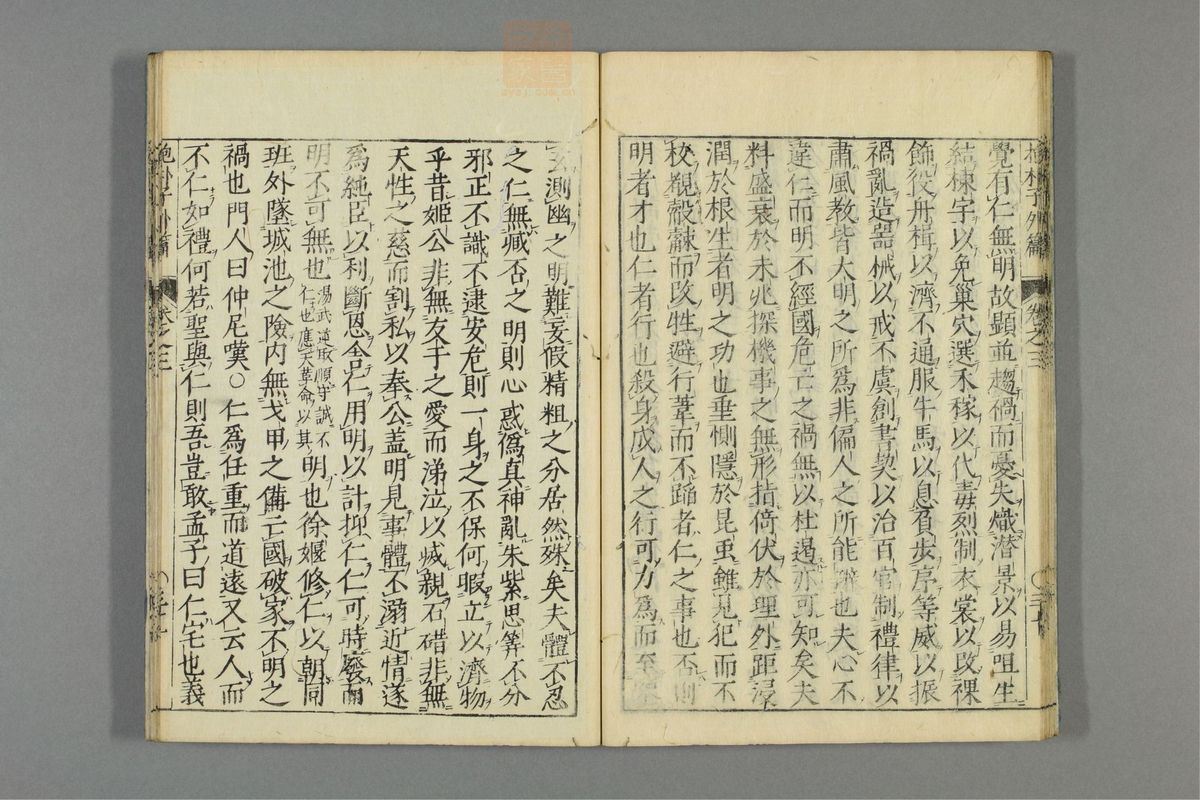 覺有仁無明故顯並趨禍而憂失熾潜景以易咀生
結棟宇以免巢穴選禾稼以代毒烈制衣裳以改裸
飾役舟楫以濟不通服牛馬以息負步序等威以振
禍亂造器械以戒不虞創書契以治百官制禮律以
肅風教皆大明之所爲非偏人之所能辯也夫心不
違仁而明不經國危亡之禍無以杜遏亦可知矣夫
料盛衰於未兆探機事之無形指倚伏於理外距浸
潤於根生者明之功也垂惻隱於昆虫雖見犯而不
校覩觳觫而改牲避行葦而不蹈者仁之事也否則
明者才也仁者行也殺身成人之行可力爲而至
玄測幽之明難妄假精粗之分居然殊矣夫體不忍
之仁無臧否之明則心惑僞真神亂朱紫思筭不分
邪正不識不逮安危則一身之不保何暇立以濟物
乎昔姬公非無友于之愛而涕泣以滅親石碏非無
天性之慈而割私以奉公盖明見事體不溺近情遂
爲純臣以利斷恩舍仁用明以計抑仁仁可時廢而
明不可無也湯武逆取順守誠不仁也應天革命以其明也徐嫗修仁以朝同
班外墜城池之險内無戈甲之備亡國破家不明之
禍也門人曰仲尼嘆○仁爲任重而道遠又云人而
不仁如禮何若聖與仁則吾豈敢孟子曰仁宅也義